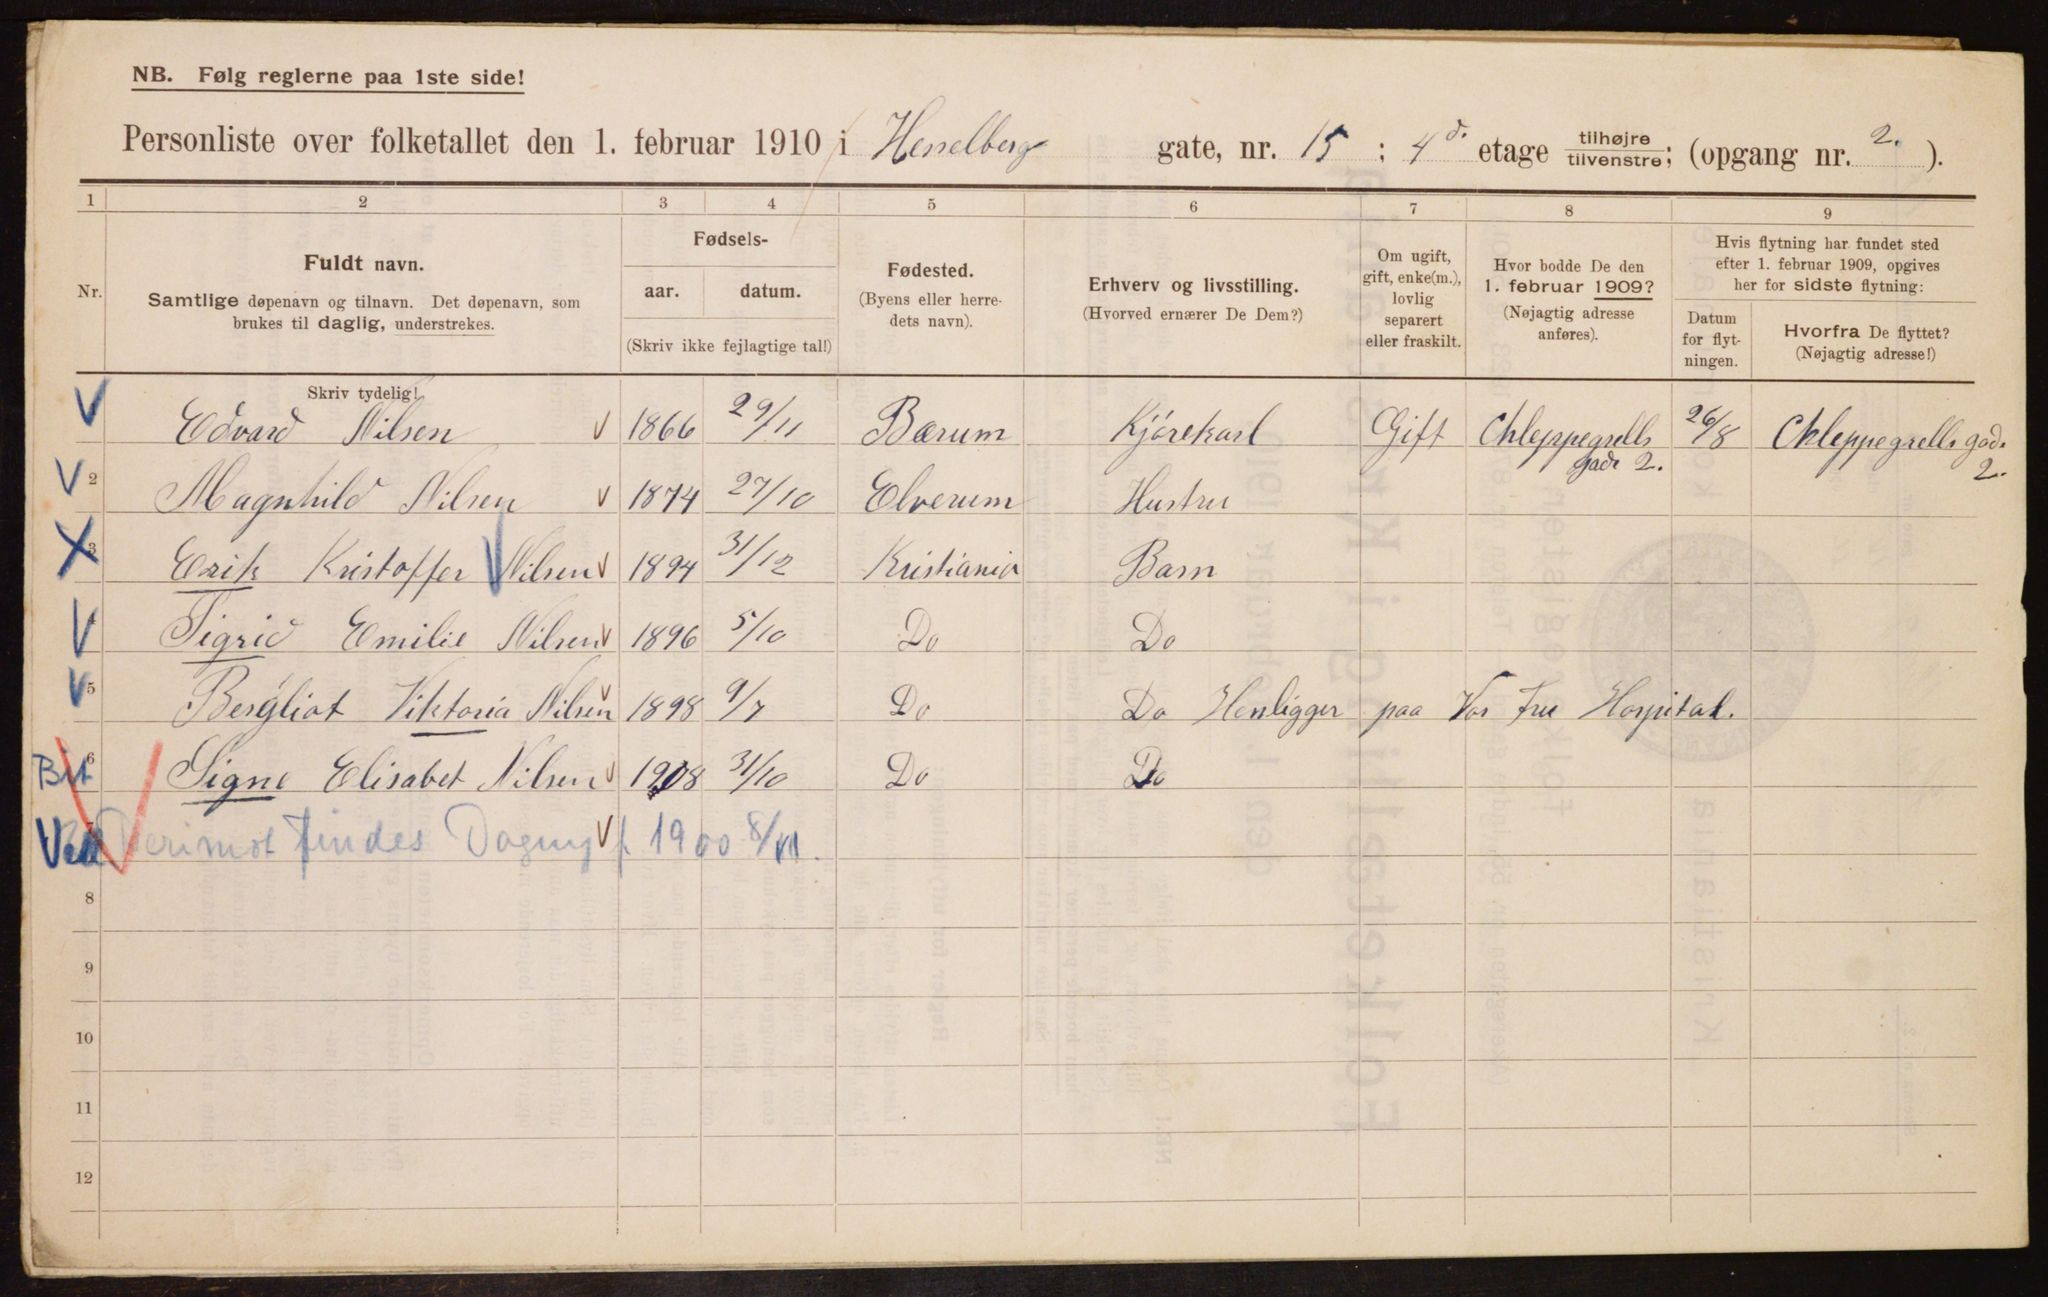 NB. Følg reglerne paa 1ste side!
Personliste over folketallet den 1. februar 1910 i Hesselberg gate, nr. 15 ; 4d. etage tilhøjre tilvenstre; (opgang nr. 2. ).
1 2 3 4 5 6 7 8 9
Nr.
Fuldt navn.
Samtlige døpenavn og tilnavn. Det døpenavn, som
brukes til daglig, understrekes.
Fødsels-
aar. datum.
(Skriv ikke fejlagtige tal!)
Fødested.
(Byens eller herre-
dets navn).
Erhverv og livsstilling.
(Hvorved ernærer De Dem?)
Om ugift,
gift, enke(m.),
lovlig
separert
eller fraskilt.
Hvor bodde De den
1. februar 1909?
(Nøjagtig adresse
anføres).
Hvis flytning har fundet sted
efter 1. februar 1909, opgives
her for sidste flytning:
Datum
for flyt-
ningen.
Hvorfra De flyttet?
(Nøjagtig adresse!)
Skriv tydelig!
Edvard Nilsen 1866 29/11 Bærum Kjørekarl Gift Chleppegrells gade 2. 26/8 Chleppegrells gade 2.
2 Magnhild Nilsen 1874 27/10 Elverum Hustru
3 Erik Kristoffer Nilsen 1894 31/12 Kristiania Barn
Sigrid Emilie Nilsen 1896 5/10 Do Do
5 Bergliot Viktoria Nilsen 1898 9/7 Do Do Hen ligger paa Vor Frue Hospital.
6 Signe Elisabet Nilsen 1908 31/10 Do Do
7 Derimot findes Dagny f. 1900 8/VII.
8
9
10
11
12